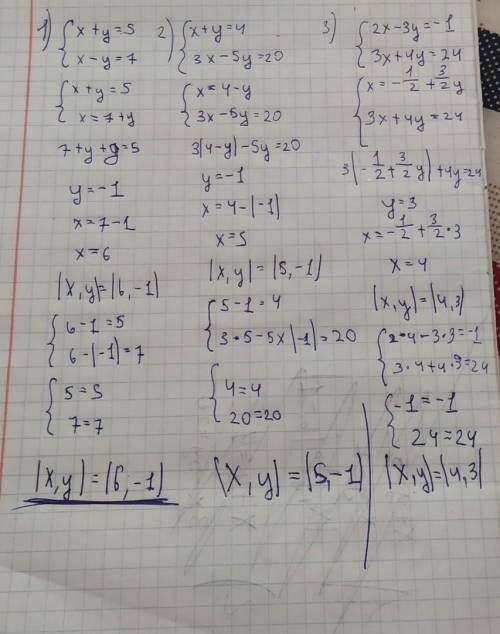 1) { x+y=5
x-y=7
{ x+y=5
x=7+y
7+y+y=5
y=-1
x=7-1
x=6
|x,y|=|6,-1)
{ 6-1=5
6-|-1)=7
{ 5=5
7=7
|x,y)=|6,-1)
2) { x+y=4
3x-5y=20
{ x=4-y
3x-5y=20
3|4-y)-5y=20
y=-1
x=4-|-1)
x=5
|x,y|=|5,-1)
{ 5-1=4
3·5-5x|-1|=20
{ 4=4
20=20
|x,y|=|5,-1)
3) { 2x-3y=-1
3x+4y=24
{ x=-1/2+3/2y
3x+4y=24
3|-1/2+3/2y|+4y=24
y=3
x=-1/2+3/2·3
x=4
|x,y|=|4,3|
{ 2·4-3·3=-1
3·4+4·3=24
{ -1=-1
24=24
|x,y|=|4,3|